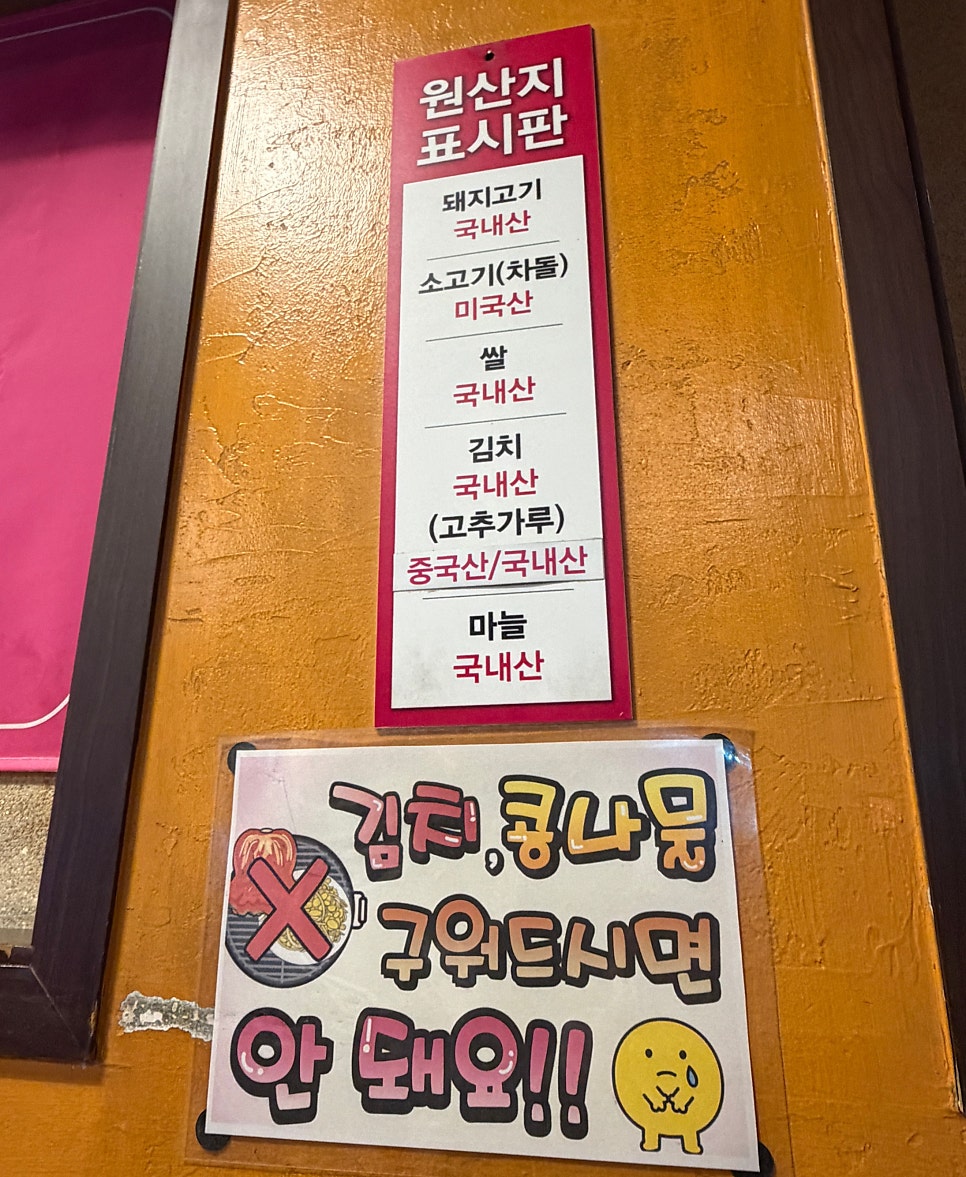 원산지
표시판
돼지고기
국내산
소고기(차돌)
미국산
쌀
국내산
김치
국내산
(고추가루)
중국산/국내산
마늘
국내산
김치,콩나물
구워드시면
안 돼요!!